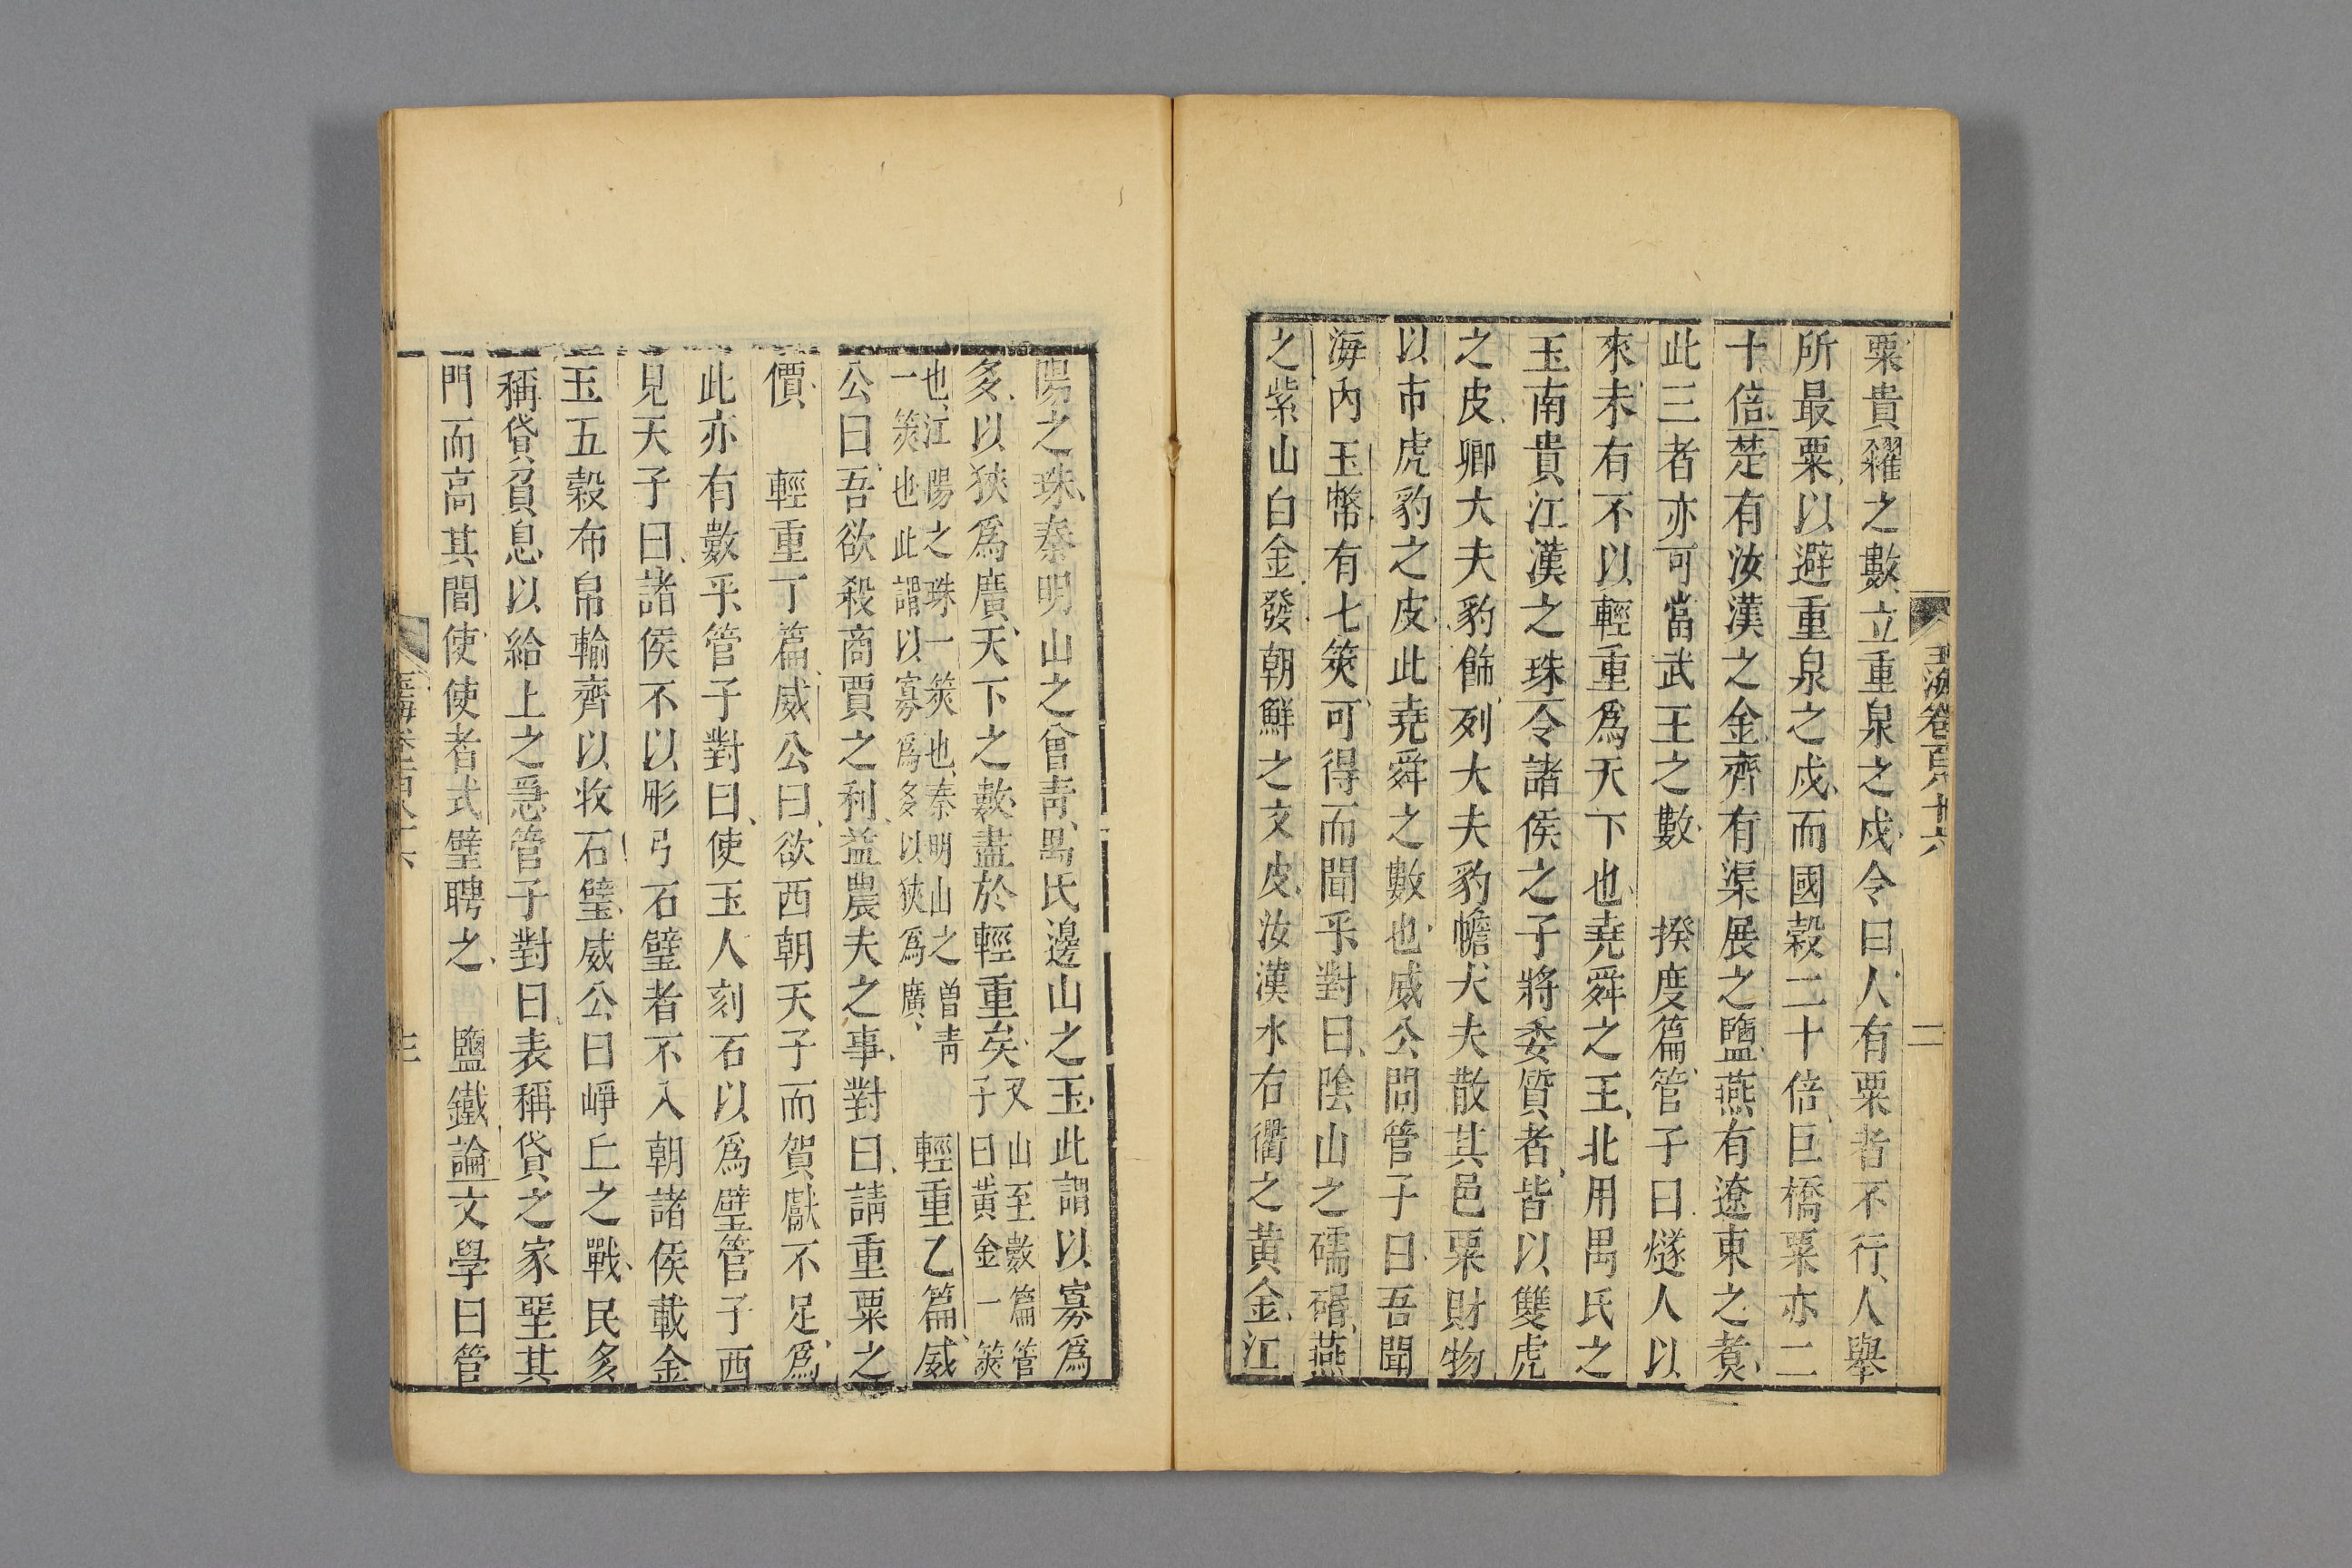 玉海卷百八十六
二
粟貴糴之數立重泉之戍令曰人有粟者不行人舉
所最粟以避重泉之戍而國穀二十倍巨橋粟亦二
十倍楚有汝漢之金齊有渠展之鹽燕有遼東之煑
此三者亦可當武王之數　揆度篇管子曰燧人以
來未有不以輕重爲天下也堯舜之王北用禺氏之
玉南貴江漢之珠令諸侯之子將委質者皆以雙虎
之皮卿大夫豹飾列大夫豹幨大夫散其邑粟財物
以市虎豹之皮此堯舜之數也威公問管子曰吾聞
海內玉幣有七筴可得而聞乎對曰陰山之礝碈燕
之紫山白金發朝鮮之文皮汝漢水右衢之黃金江
陽之珠秦明山之曾靑禺氏邊山之玉此謂以寡爲
多以狹爲廣天下之數盡於輕重矣又山至數篇管
子曰黃金一筴
也江陽之珠一筴也秦明山之曾靑
一筴也此謂以寡爲多以狹爲廣　輕重乙篇威
公曰吾欲殺商賈之利益農夫之事對曰請重粟之
價　輕重丁篇威公曰欲西朝天子而賀獻不足爲
此亦有數乎管子對曰使玉人刻石以爲璧管子西
見天子曰諸侯不以彤弓石璧者不入朝諸侯載金
玉五穀布帛輸齊以收石璧威公曰崢丘之戰民多
稱貸負息以給上之急管子對曰表稱貸之家堊其
門而高其閭使使者式璧聘之　鹽鐵論文學曰管
三